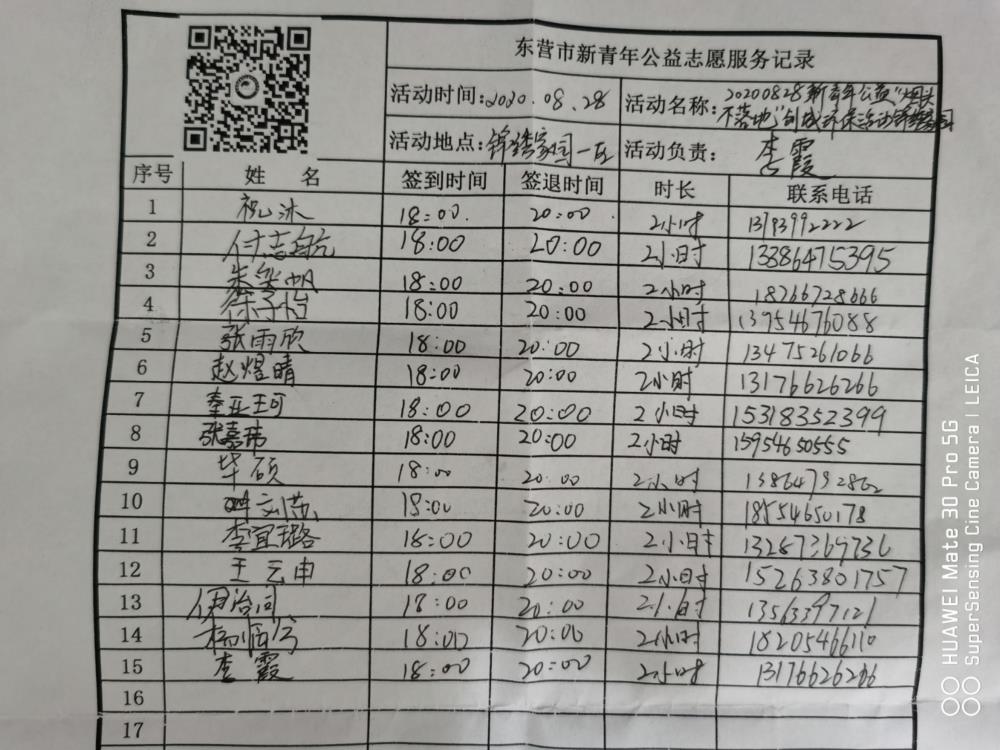 东营市新青年公益志愿服务记录
活动时间:2020.08.28 活动名称:20200828新青年公益"烟头
不落地"创城环保活动锦绣家园
活动地点:锦绣家园一区 活动负责:李霞
序号 姓 名 签到时间 签退时间 时长 联系电话
1 祝冰 18:00. 20:00 2小时 13793992222
2 付志航 18:00 20:00 2小时 13386475395
3 18:00 20:00 2小时 18266728666
4 徐子怡 18:00 20:00 2小时 13954676088
5 张雨欣 18:00 20:00 2小时 13475261066
6 赵煜晴 18:00 20:00 2小时 13176626266
7 秦亚珂 18:00 20:00 2小时 15318352399
8 张嘉玮 18:00 20:00 2小时 15954650555
9 毕硕 18:00 20:00 2小时 13864792862
10 18:00 20:00 2小时 18554650178
11 李宜璐 18:00 20:00 2小时 13287369736
12 王云申 18:00 20:00 2小时 15263801757
13 18:00 20:00 2小时 13563397121
14 18:00 20:00 2小时 18205466110
15 李霞 18:00 20:00 2小时 13176626266
16
17
HUAWEI Mate 30 Pro 5G
SuperSensing Cine Camera | LEICA